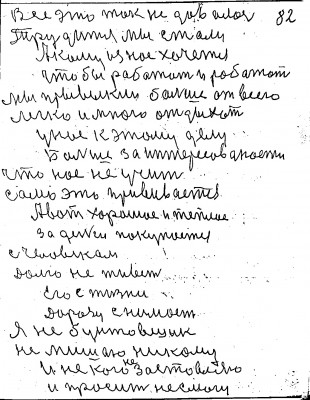 Все это так не для 82
Трудится мы стали
А кому из нас хочется
чтобы работат и работат
мы привыкли больше от всего
легко и много отдыхат
у нас к этому делу
Больше заинтересованости
что нас не учит
само это прививается
А вот хорошое и теплое
за денги покупается
с человекам
долго не живет
его с жизни
дорогу снимает
Я не бунтовщик
не мишаю никому
и не кого не заставляю
и просит не смогу